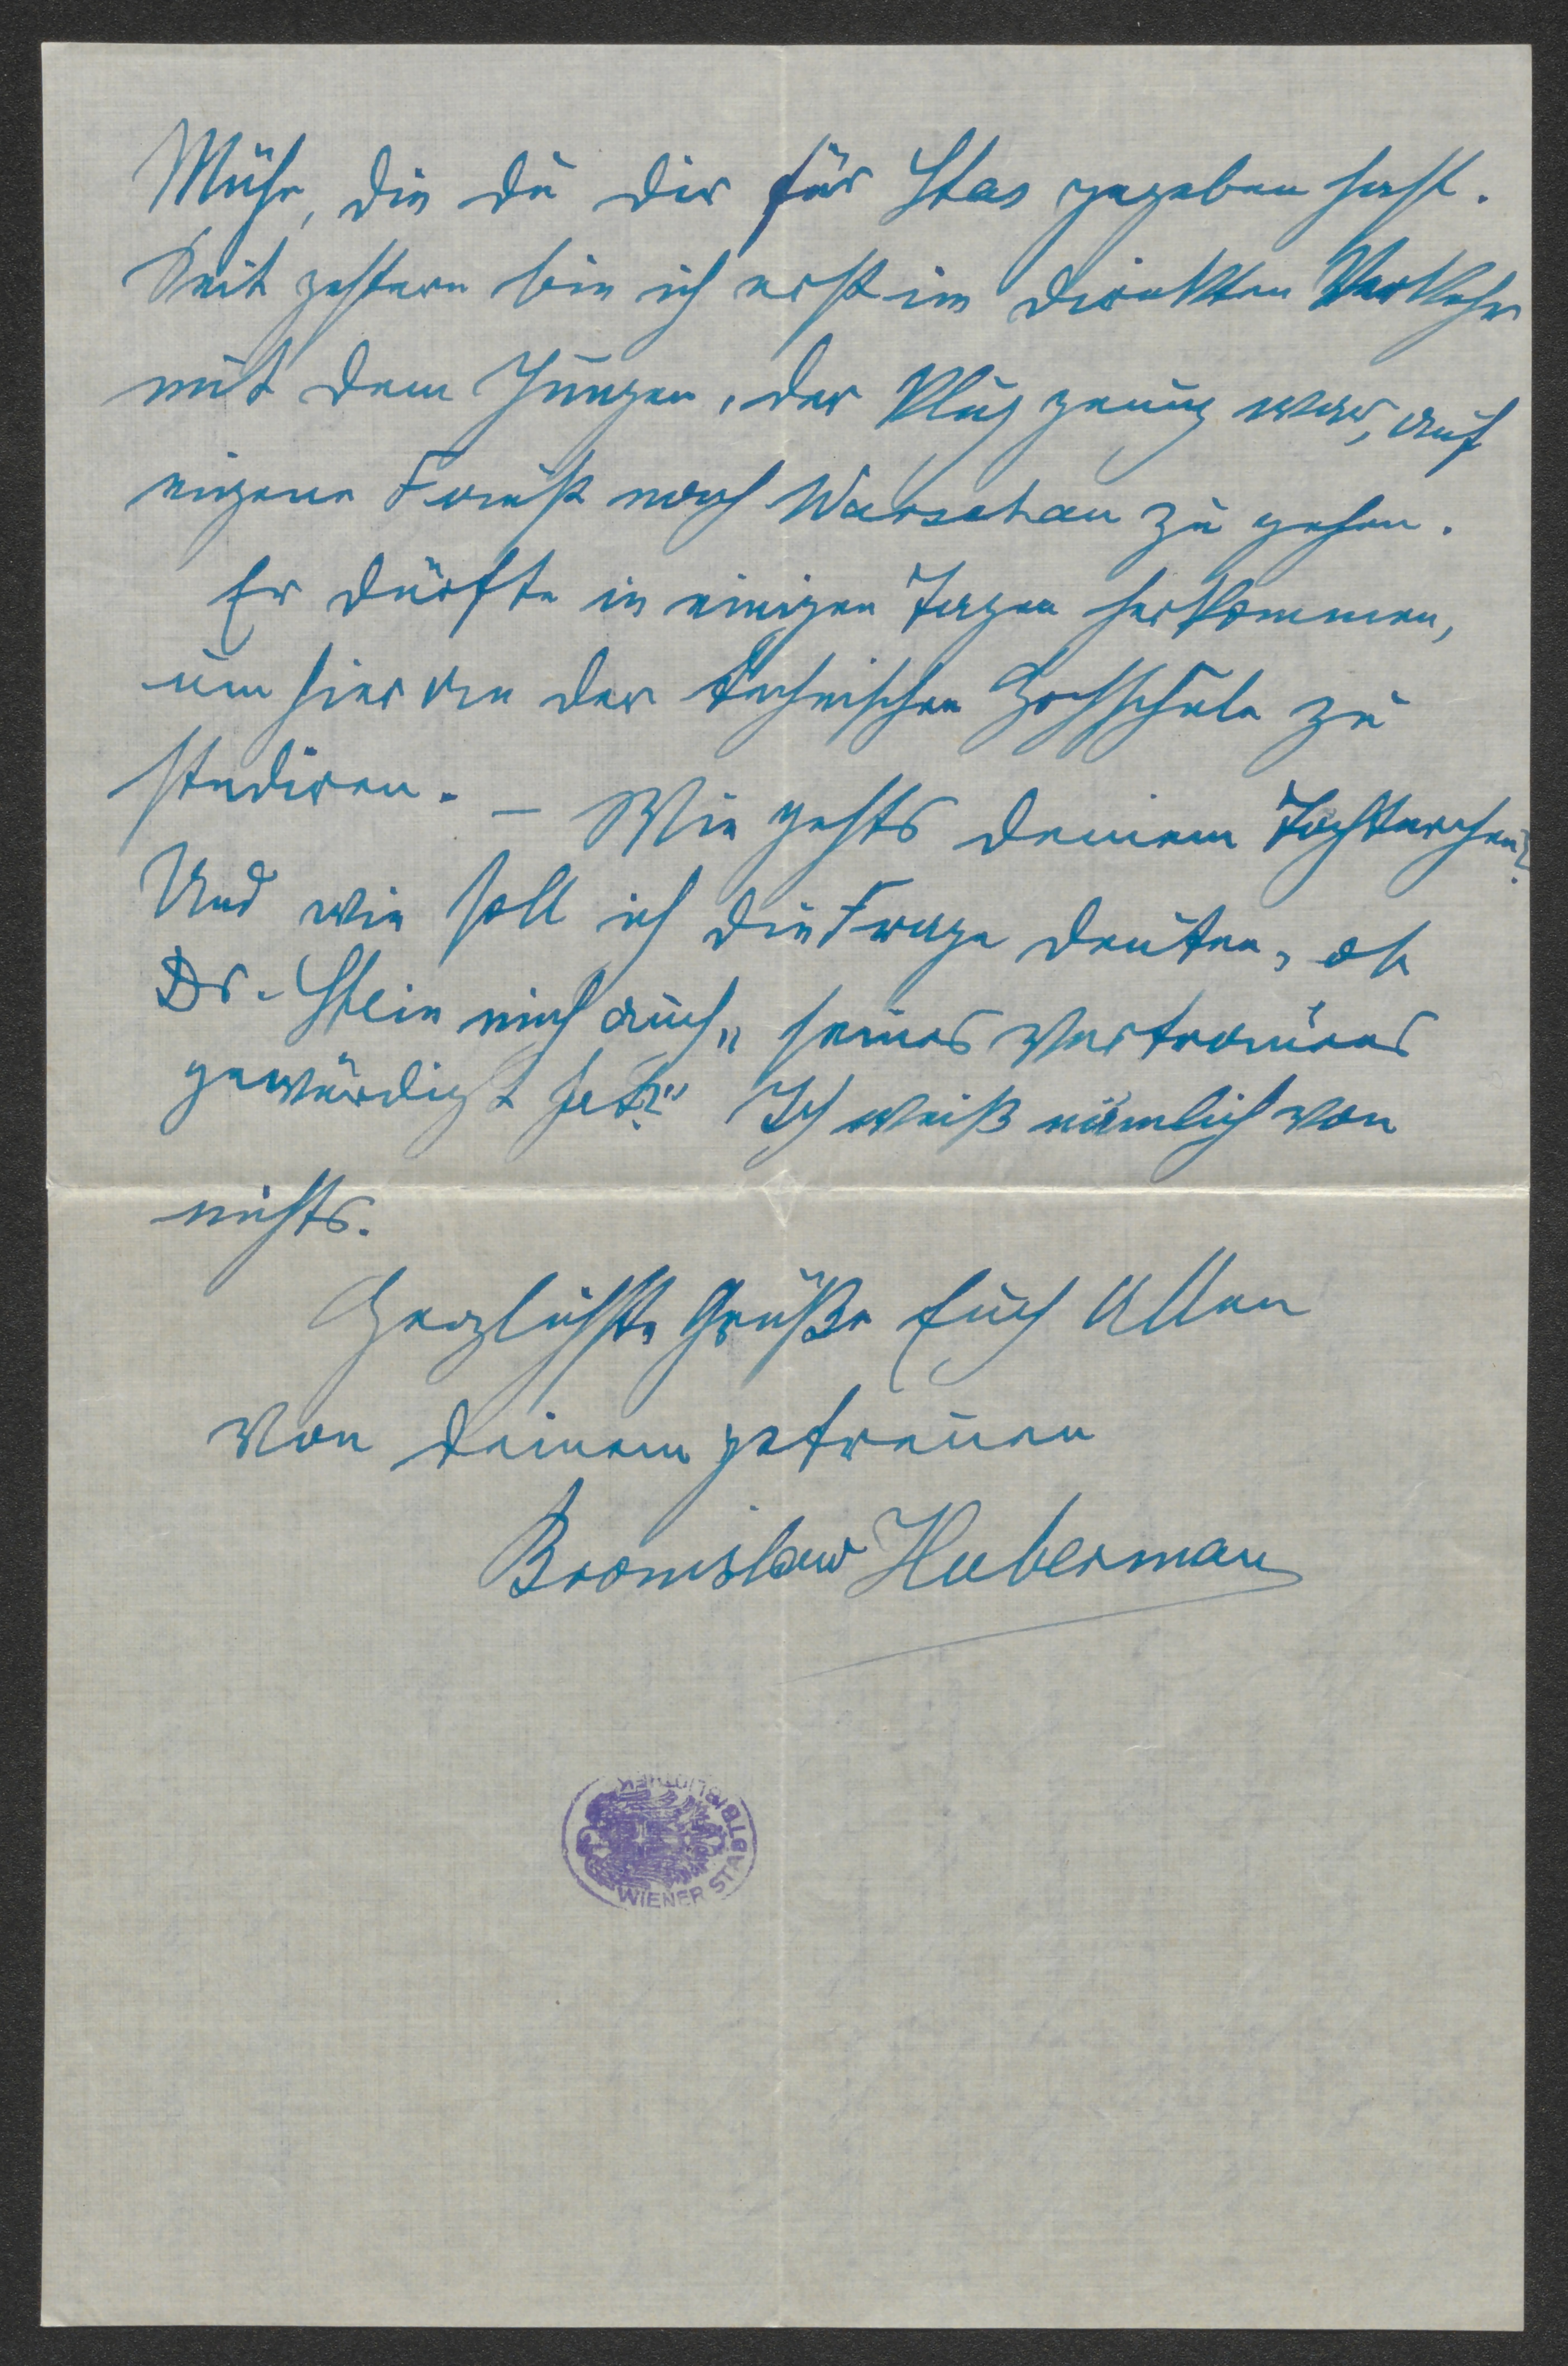 Mühe, die du dir für Stas gegeben hast.
Seit gestern bin ich erst im direkten Verkehr
mit dem Jungen, der klug genug war, auf
eigene Faust nach Warschau zu gehen.
Er dürfte in einigen Tagen herkommen,
um hier an der technischen Hochschule zu
studiren. – Wie gehts deinem Töchterchen?
Und wie soll ich die Frage deuten, ob
Dr. Stein mich auch „seines Vertrauens
gewürdigt hat?" Ich weiß nämlich von
nichts.
Herzlichste Grüße Euch Allen
von deinem getreuen
Bronislaw Huberman
WIENER STADTBIBLIOTHEK